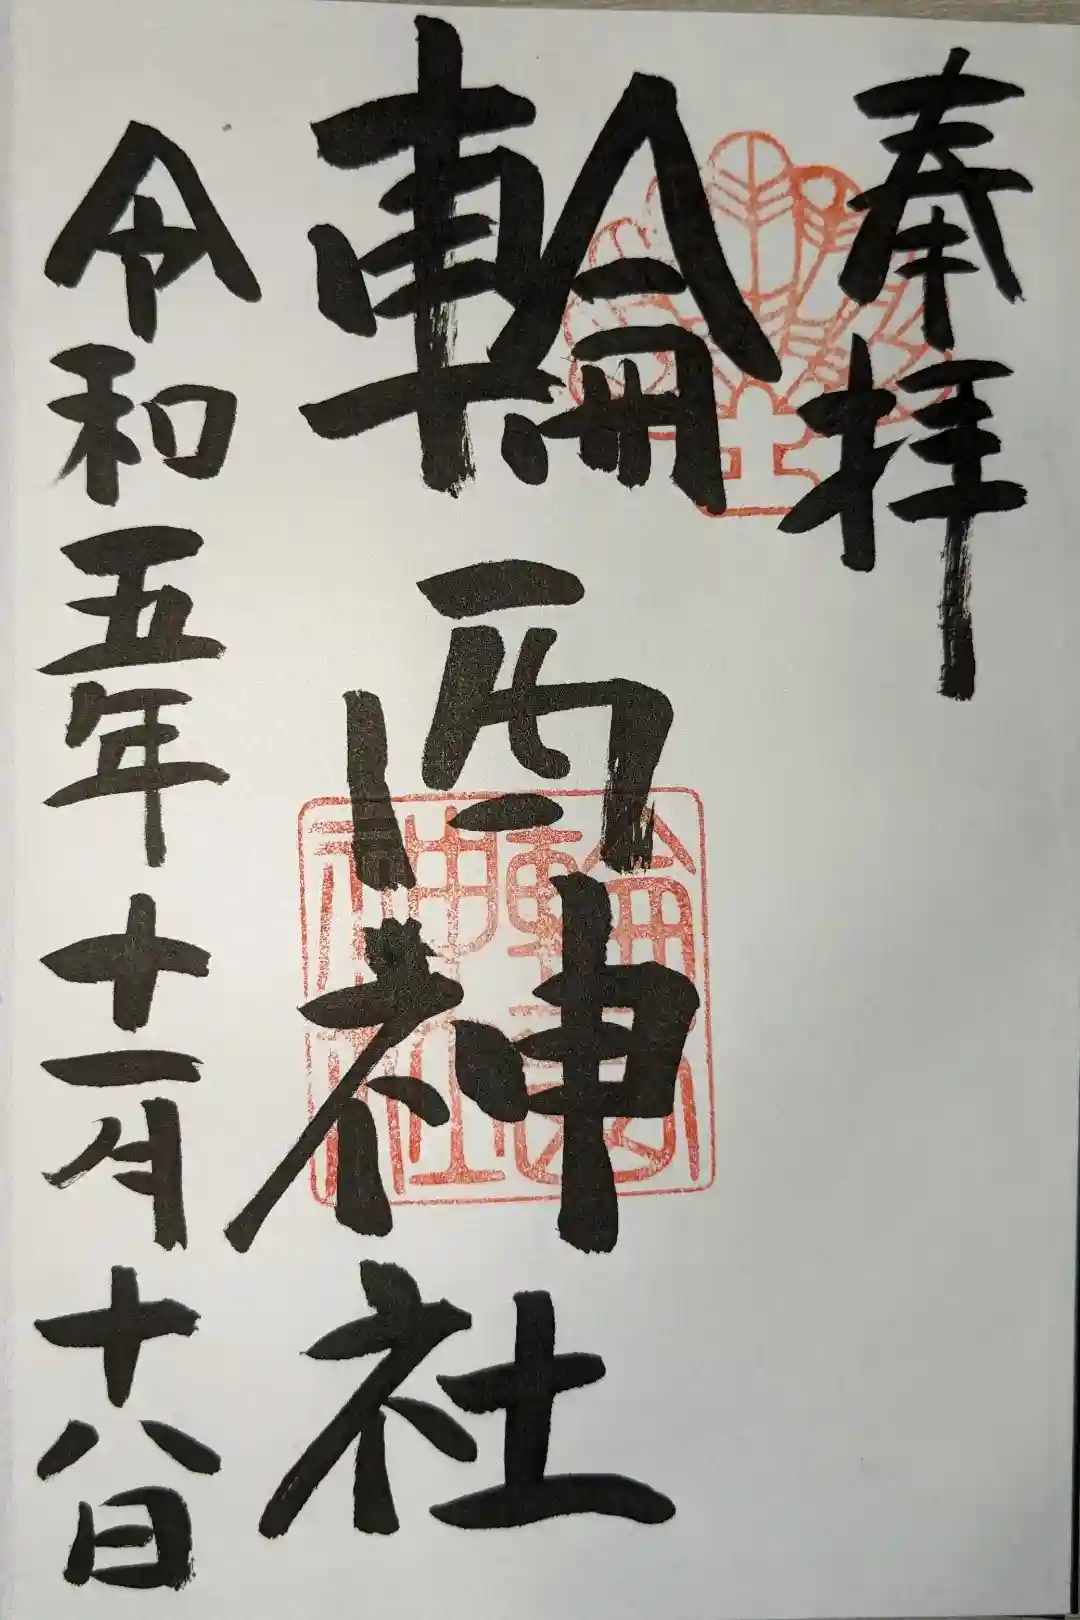 奉拝
輪西神社
輪西神社
令和五年十一月十八日